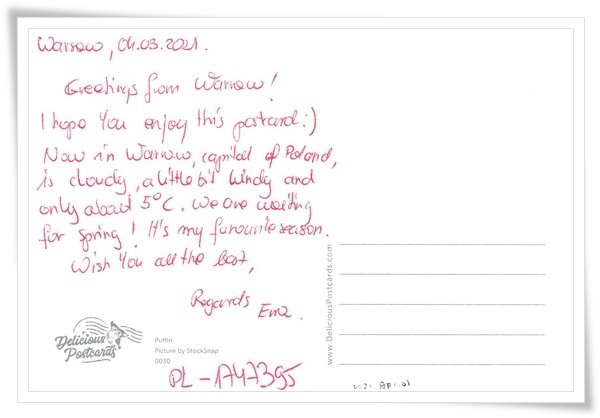 Warsaw, 04.03.2021.
Greetings from Warsaw!
I hope You enjoy this postcard :)
Now in Warsaw, capital of Poland,
is cloudy, a little bit windy and
only about 5°C. We are waiting
for spring! It's my favourite season.
Wish You all the best,
Regards
Delicious
Postcards
Puffin
Picture by StockSnap
0030
PL-1747395
www.DeliciousPostcards.com